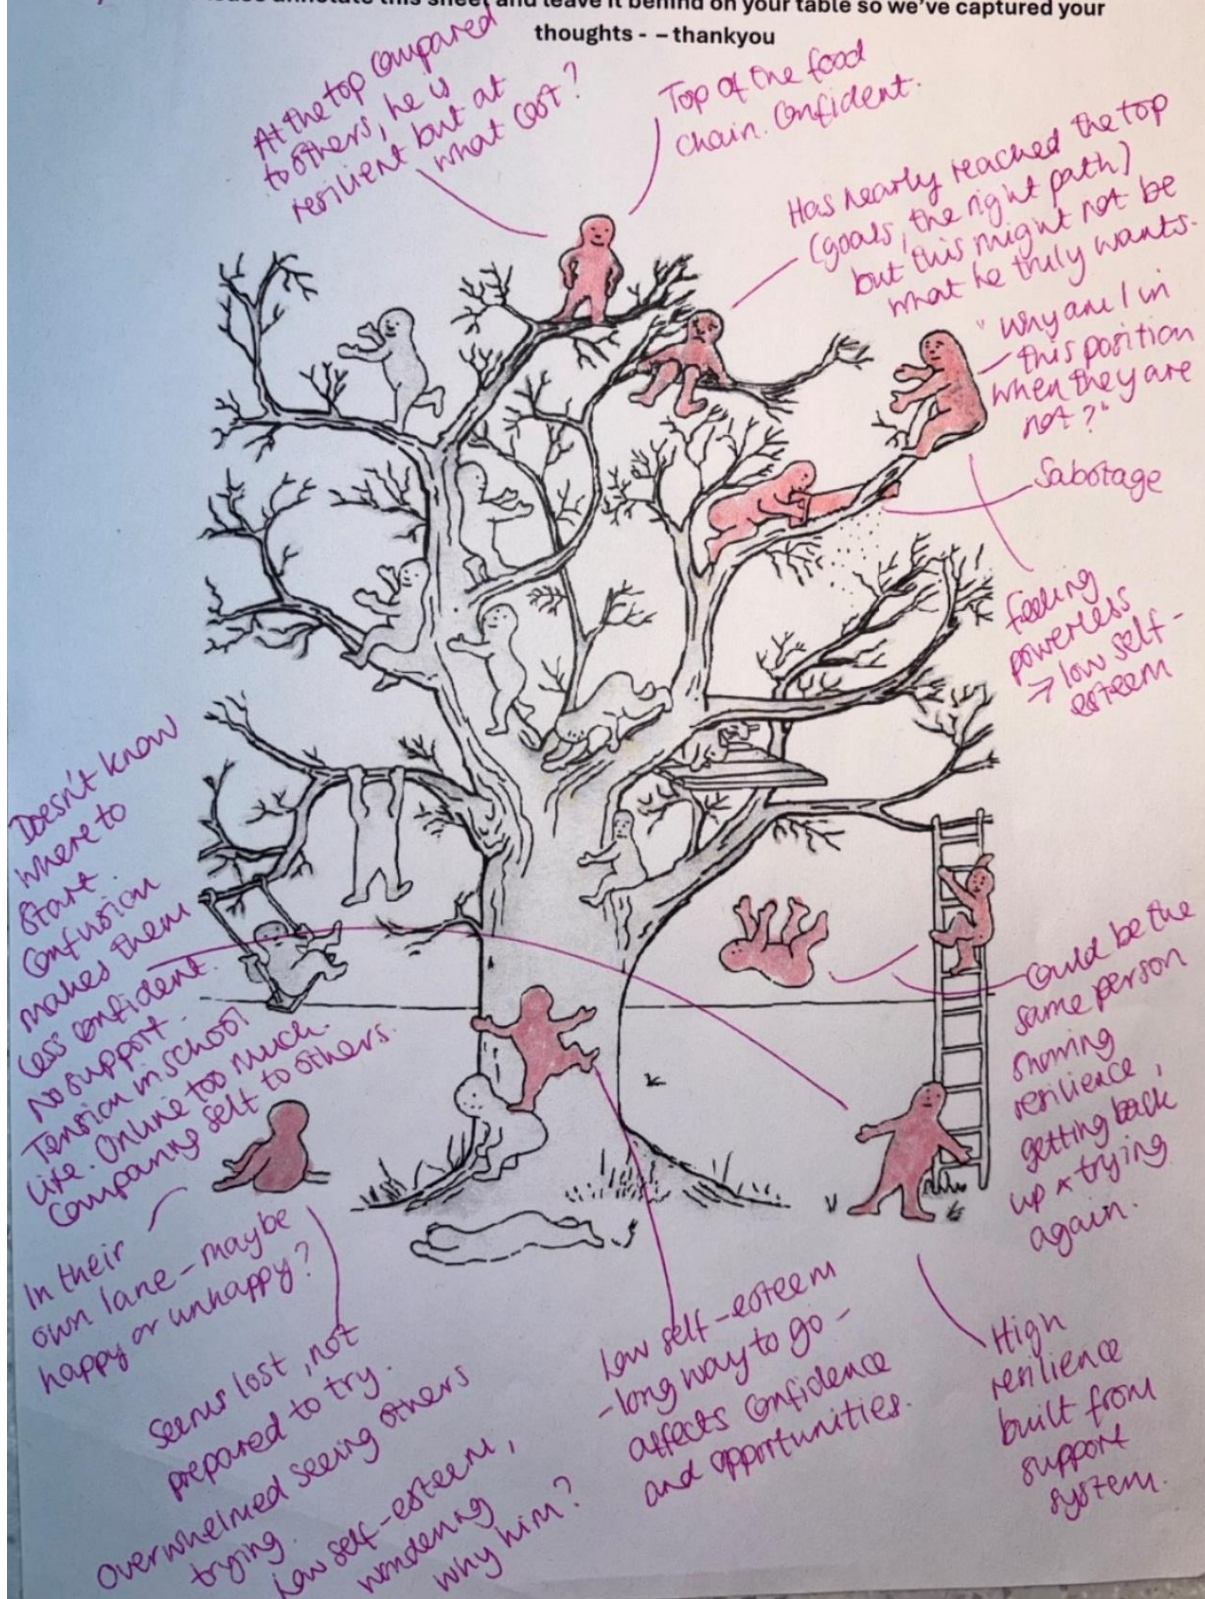 annotate this sheet and leave it behind on your table so we've captured your
thoughts - – thankyou
At the top compared
to others, he is
resilient but at
what cost?
Top of the food
chain. Confident.
Has nearly reached the top
(goals, the right path)
but this might not be
what he truly wants.
"Why am I in
this position
when they are
not?"
Sabotage
feeling
powerless
→ low self-
esteem
Doesn't know
where to
start.
Confusion
makes them
less confident.
No support.
Tension in school
life. Online too much.
Comparing self to others.
Could be the
same person
showing
resilience,
getting back
up & trying
again.
In their
own lane – maybe
happy or unhappy?
Seems lost, not
prepared to try.
Overwhelmed seeing others
trying.
Low self-esteem,
wondering
why him?
Low self-esteem
- long way to go -
affects confidence
and opportunities.
High
resilience
built from
support
system.